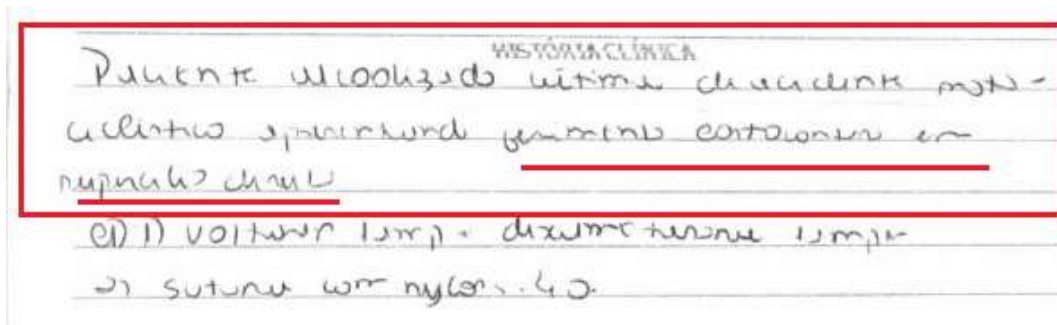 HISTÓRIA CLÍNICA
Paciente alcoolizado vitima de acidente moto-
ciclistico apresentando ferimento cortocontuso em
CD 1) voltaren 1 amp. dexametasona 1 ampo
2) sutura com nylon. 4.0.